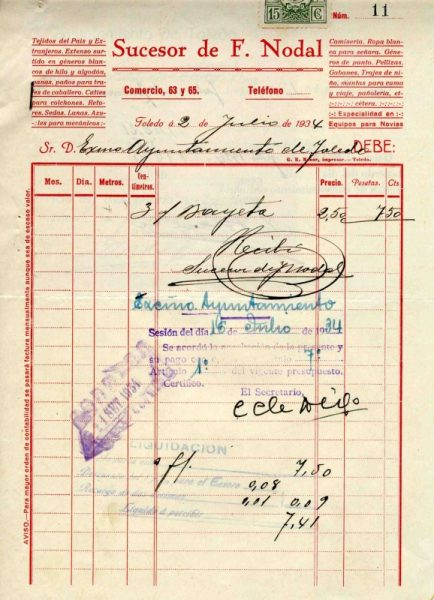 15 C
Núm. 11
Tejidos del País y Ex-
tranjeros. Extenso sur-
tido en géneros blan-
cos de hilo y algodón,
panas, paños para tra-
s de caballero. Catíes
para colchones. Reto-
res. Sedas. Lanas. Azu-
les para mecánicos
Sucesor de F. Nodal
Comercio, 63 y 65.
Teléfono
Camisería. Ropa blan-
ca para señora. Géne-
ros de punto. Pellizas.
Gabanes. Trajes de ni-
ño, mantas para cama
y viaje, pañolería, et-
cétera.
Especialidad en
Equipos para Novias
Toledo a 2 de Julio de 1934
Sr. D. Exmo Ayuntamiento de Toledo DEBE:
impresor.—Toledo.
Mes. Día. Metros. Cen-
tímetros. Precio. Pesetas. Cts
3 Bayeta 2,50 7 50
Recibí
Sucesor de F Nodal
Excmo Ayuntamiento
Sesión del día 16 de Julio de 1934
Se acordó la de la presente y
su pago con 7º
Artículo 1º del vigente presupuesto.
Certifico.
El Secretario,
LIQUIDACION
7,50
0,08
0,01 0,09
Líquido a percibir
7,41
AVISO.—Para mayor orden de contabilidad se pasará factura mensualmente aunque sea de escaso valor.